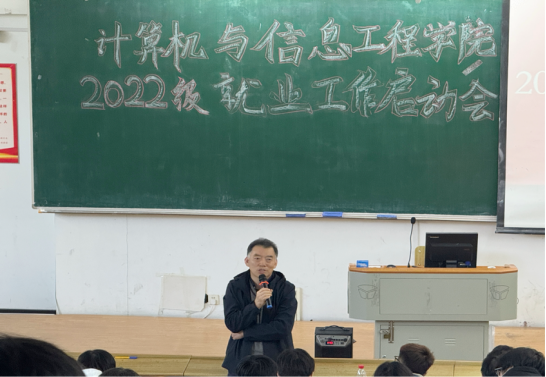 计算机与信息工程学院
2022级就业工作启动会
20